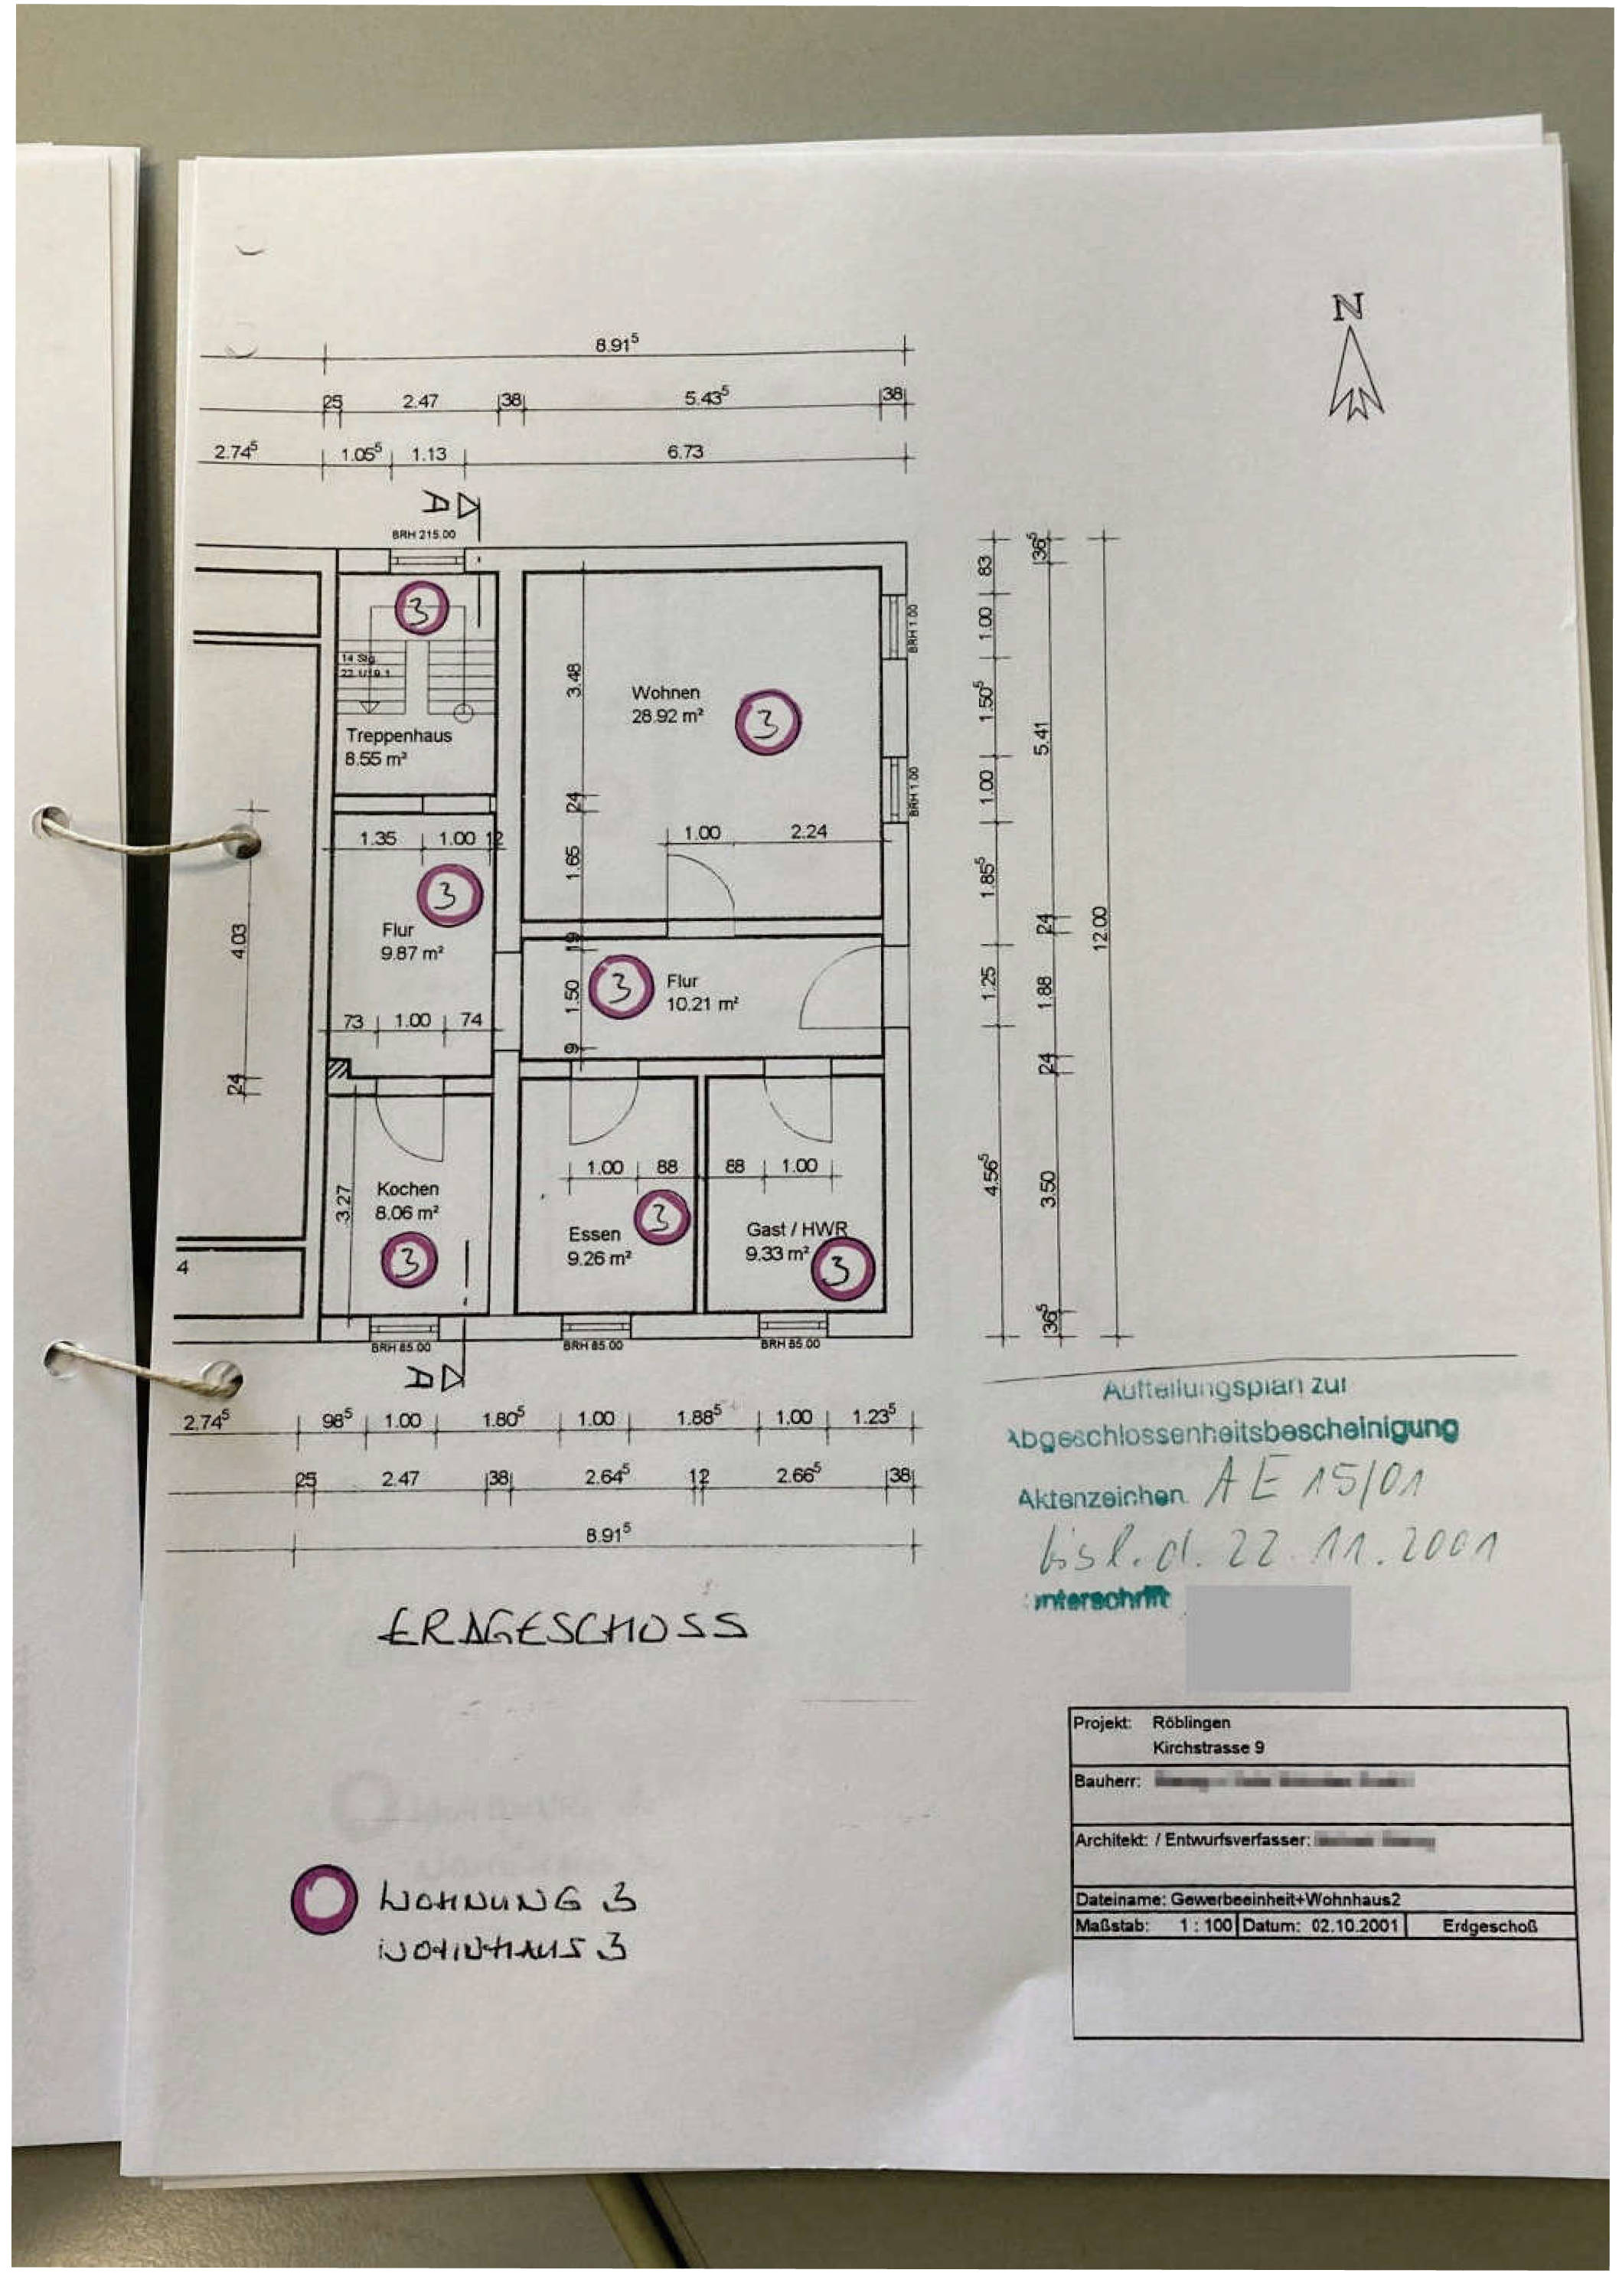 N
8.91⁵
25 2.47 38 5.43⁵ 38
2.74⁵ 1.05⁵ 1.13 6.73
A
BRH 215.00
83
36⁵
3
1.00
BRH 1.00
14 Stg
3.48
Wohnen
28.92 m²
3
1.50⁵
5.41
Treppenhaus
8.55 m²
24
1.00
BRH 1.00
1.35 1.00 12
1.00 2.24
1.65
1.85⁵
3
4.03
Flur
9.87 m²
19
24
12.00
3
Flur
10.21 m²
1.50
1.25
1.88
73 1.00 74
9
24
24
1.00 88 88 1.00
4.56⁵
3.50
3.27
Kochen
8.06 m²
3
Essen
9.26 m²
3
Gast / HWR
9.33 m²
3
4
36⁵
BRH 85.00 BRH 85.00 BRH 85.00
A
2.74⁵ 98⁵ 1.00 1.80⁵ 1.00 1.88⁵ 1.00 1.23⁵
25 2.47 38 2.64⁵ 12 2.66⁵ 38
8.91⁵
Aufteilungsplan zur
Abgeschlossenheitsbescheinigung
Aktenzeichen AE 15/01
22.11.2001
Unterschrift
ERDGESCHOSS
Projekt: Röblingen
Kirchstrasse 9
Bauherr:
Architekt: / Entwurfsverfasser:
Dateiname: Gewerbeeinheit+Wohnhaus2
Maßstab: 1 : 100 Datum: 02.10.2001 Erdgeschoß
WOHNUNG 3
WOHNHAUS 3